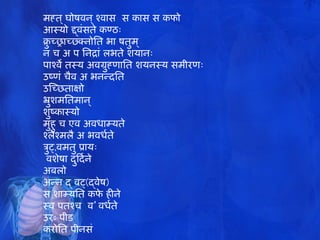 महत् घोषवन् श्वास स कास स कफो
आस्यो द्द्वंसते कण्ठः
कृच्छ्राच्छक्नोति भा षतुम्
न च अ प निद्रां लभते शयानः
पार्श्वे तस्य अवगृह्णाति शयनस्य समीरणः
उष्णं चैव अ भनन्दति
उच्छिताक्षो
भ्रुशमतिमान्
शुष्कास्यो
मुहु च एव अवधाम्यते
श्लैश्मलै अ भवर्धते
त्रुट्,वमतु प्रायः
वशेषा दुर्दिने
अबलो
अन्न द् वट्(द्वेष)
स शाम्यति कफे हीने
स्व पतश्च व वर्धते
उरः पीड
करोति पीनसं